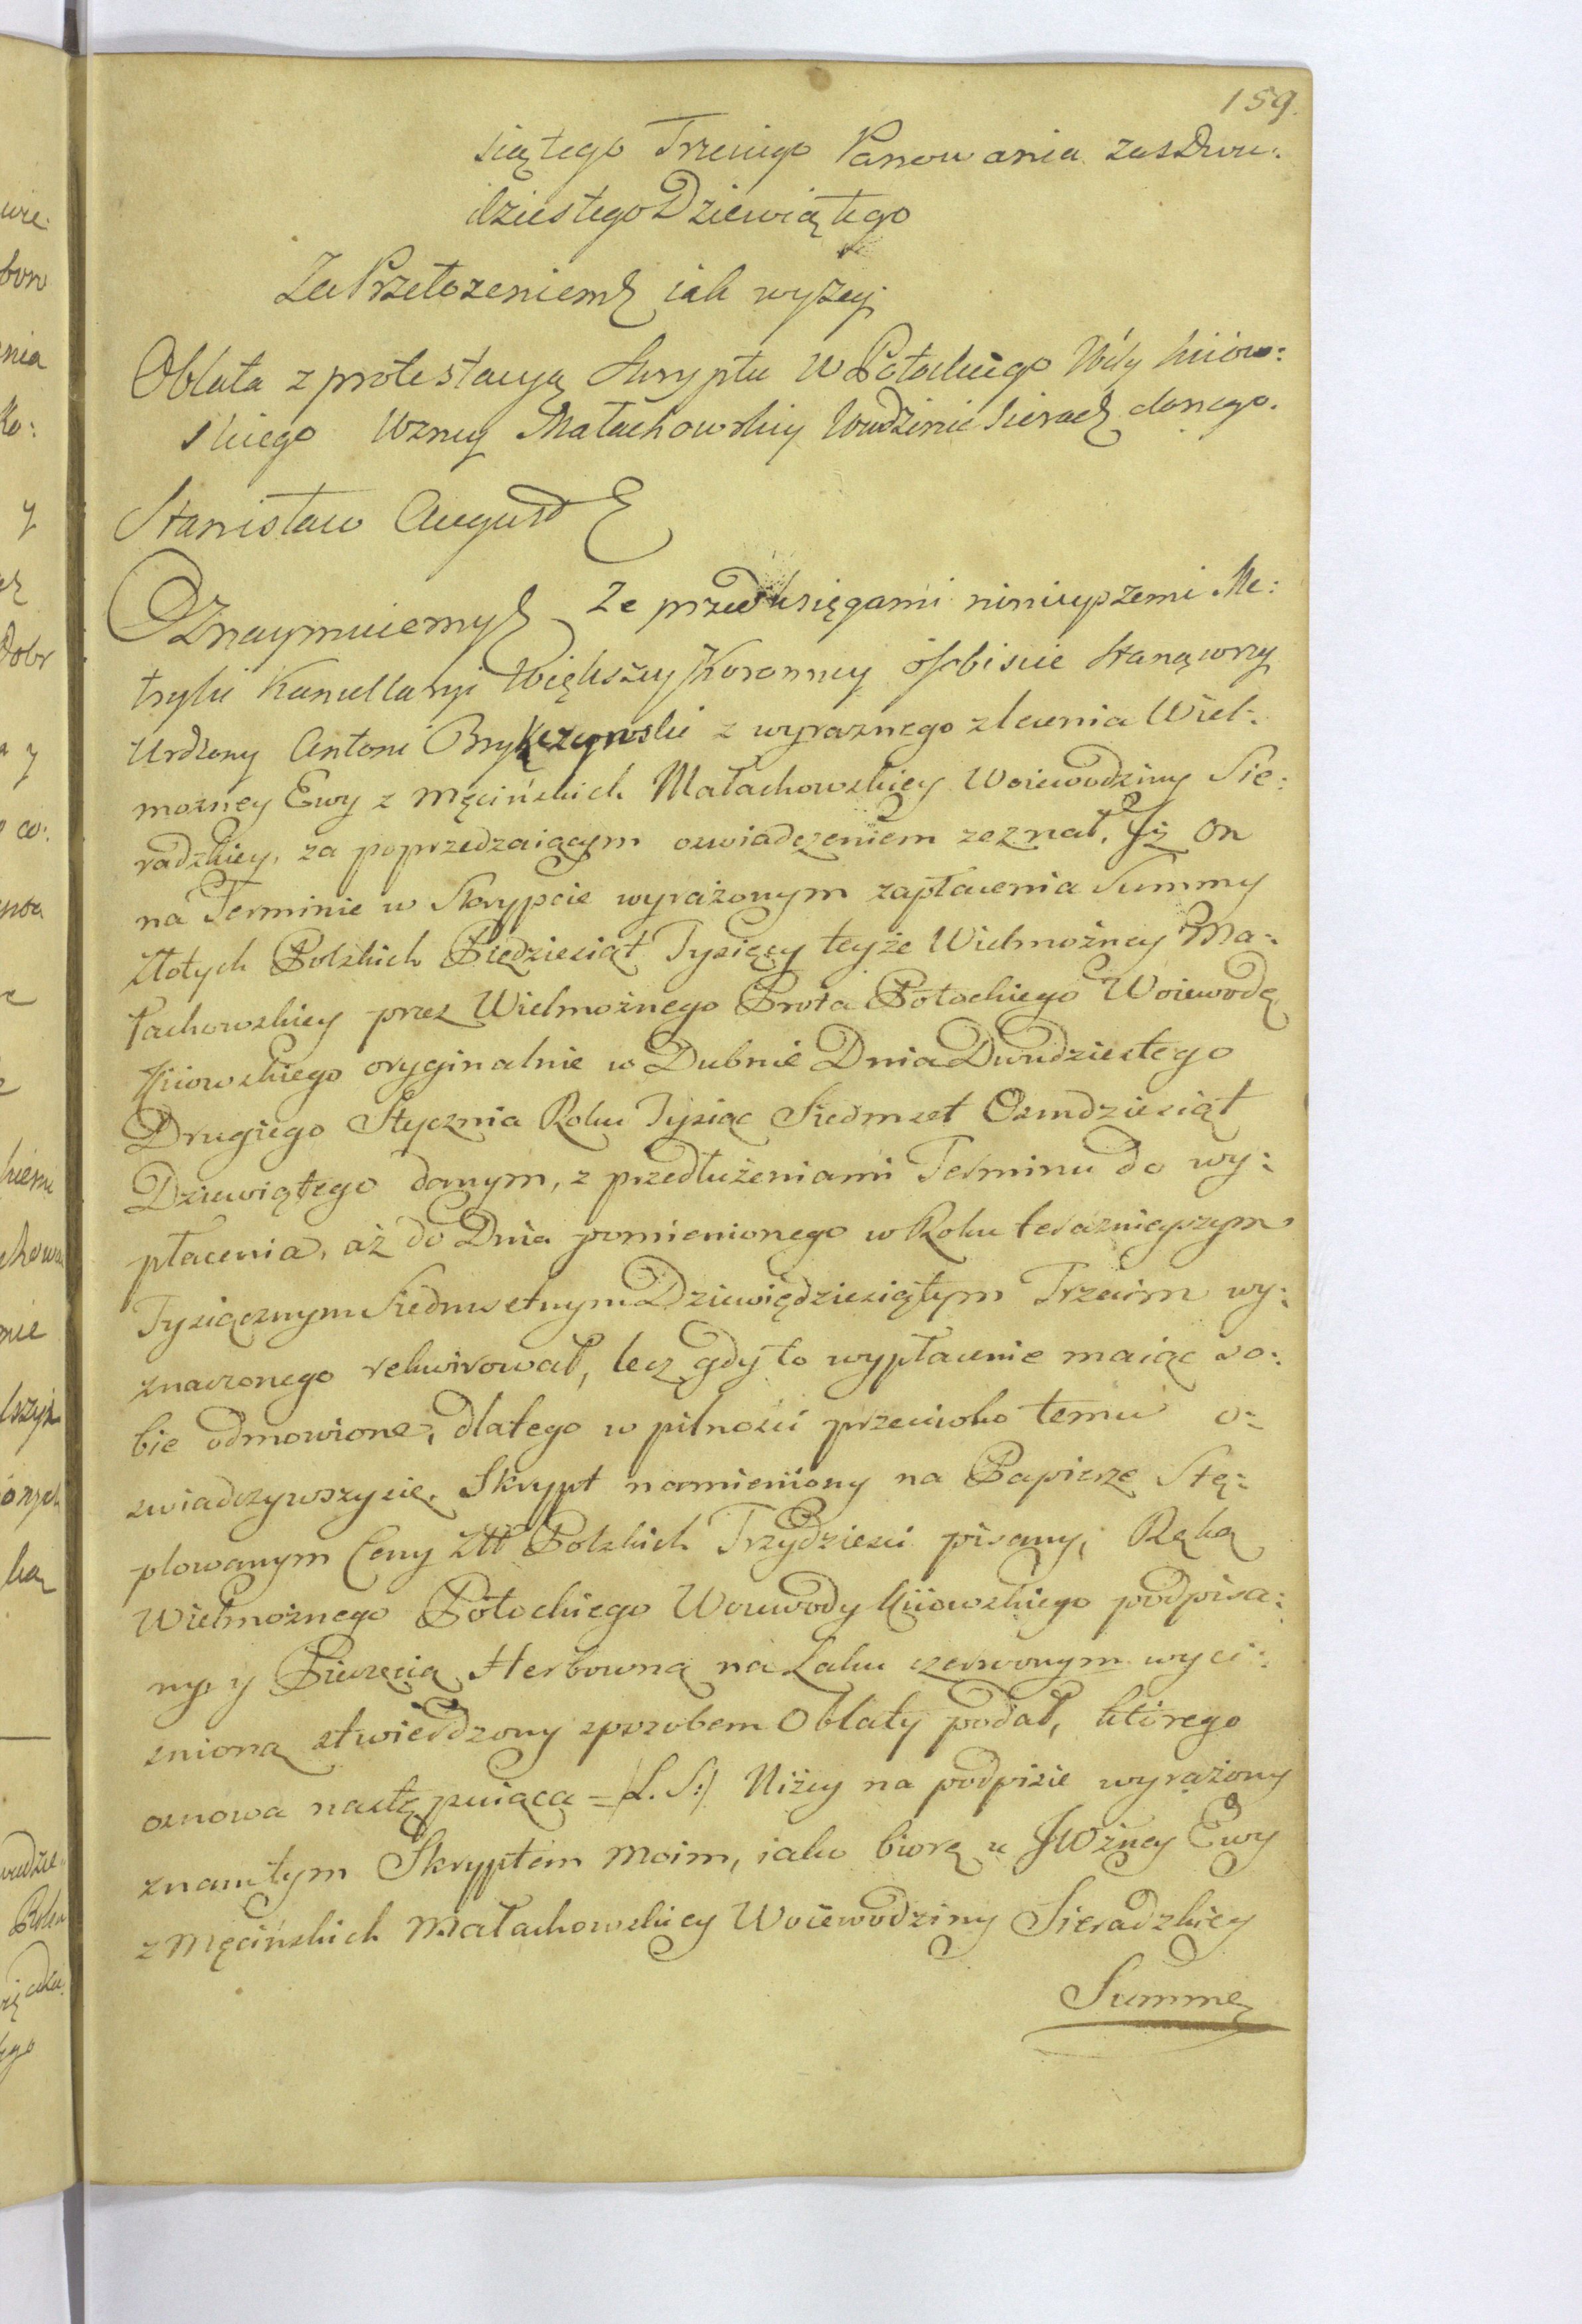 159.
siątego Trzeciego Panowania zas Dwu:
dziestego Dziewiątego
Za Przełożeniem iak wyżey
Oblata z protestacyą Skryptu W Potockiego Wdy Kiiow:
skiego Wzney Małachowskiey Wwdzinie Sieradz danego.
Stanisław August
Oznaymuiemy Że przed księgami ninieyszemi Me:
tryki Kancellaryi Większey Koronney osobiscie stanąwszy
Urdzony Antoni Brykczynski z wyraznego zlecenia Wiel:
mozney Ewy z Męcińskich Małachowskiey Woiewodziny Sie:
radzkiey, za poprzedzaiącym oswiadczeniem zeznał. Iż On
na Terminie w Skrypcie wyrażonym zapłacenia Summy
Złotych Polskich Piędziesiąt Tysięcy teyże Wielmożney Ma:
łachowskiey przez Wielmożnego Prota Potockiego Woiewodę
Kiiowskiego oryginalnie w Dubnie Dnia Dwudziestego
Drugiego Stycznia Roku Tysiąc Siedmset Osmdziesiąt
Dziewiątego danym, z przedłużeniami Terminu do wy:
płacenia, aż do Dnia pomienionego w Roku teraznieyszym
Tysiącznym Siedmsetnym Dziewiędziesiątym Trzecim wy:
znaczonego rekwirował, lecz gdy to wypłacenie maiąc so:
bie odmowione, dlatego w pilności przeciwko temu o:
swiadczywszysię. Skrypt namieniony na Papierze Stę:
plowanym Ceny Złł Polskich Trzydzieści pisany, Ręką
Wielmożnego Potockiego Woiewody Kiiowskiego podpisa:
ny, y Pieczęcią Herbowną na Laku czerwonym wyci:
snioną stwierdzony sposobem Oblaty podał, którego
osnowa następuiąca = /L. S:/ Niżey na podpisie wyrażony
znam tym Skryptem moim, iako biorę u JWżney Ewy
z Męcińskich Małachowskiey Woiewodziny Sieradzkiey
Summę